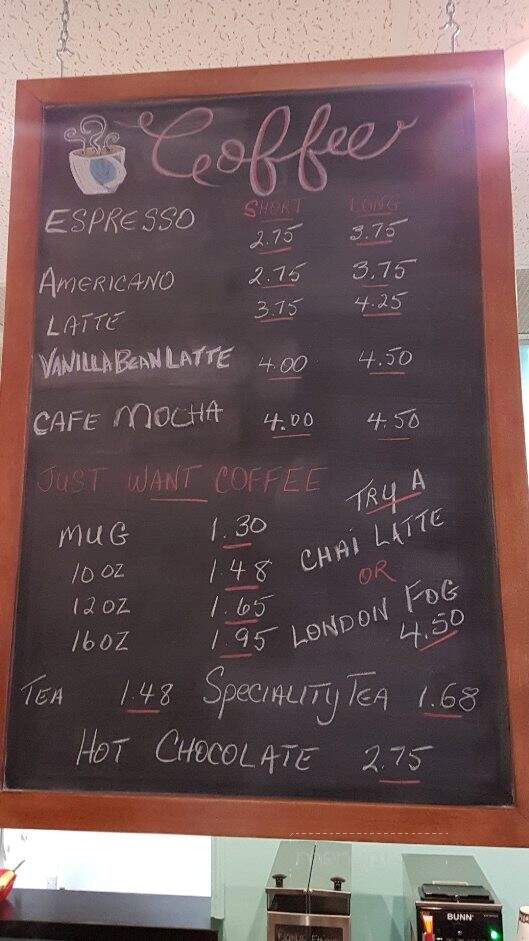 Coffee
SHORT LONG
ESPRESSO 2.75 3.75
AMERICANO 2.75 3.75
LATTE 3.75 4.25
VANILLA BEAN LATTE 4.00 4.50
CAFE MOCHA 4.00 4.50
JUST WANT COFFEE
MUG 1.30
10 OZ 1.48
12 OZ 1.65
16 OZ 1.95
TRY A
CHAI LATTE
OR
LONDON FOG
4.50
TEA 1.48 SPECIALITY TEA 1.68
HOT CHOCOLATE 2.75
BUNN